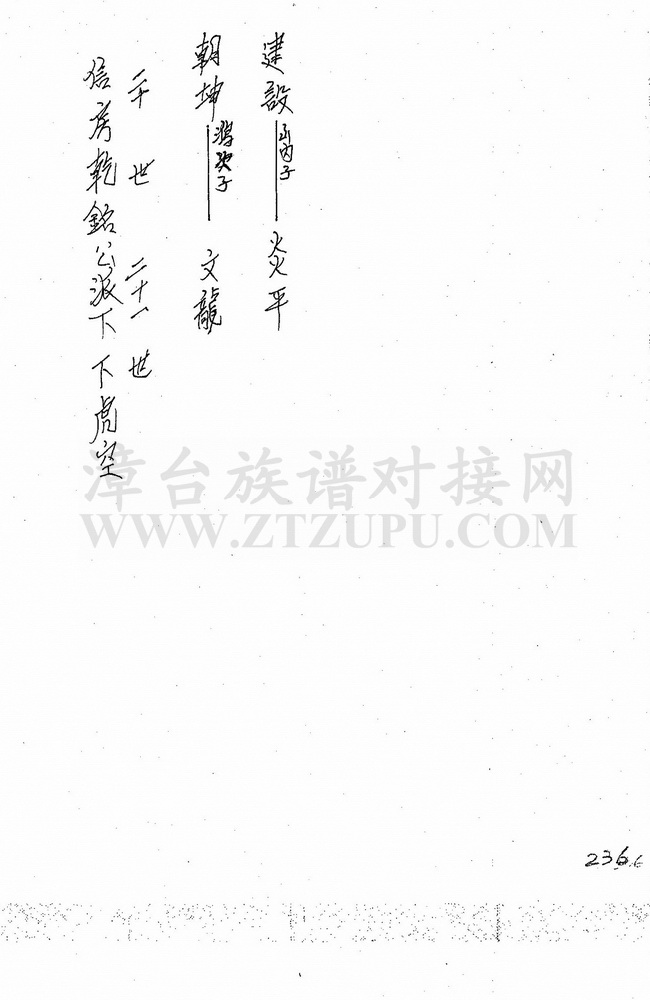 建設 內子 炎平
朝坤 次子 文龍
二十世 二十一世
信房乾銘公派下 下虎空
漳台族谱对接网
WWW.ZTZUPU.COM
236